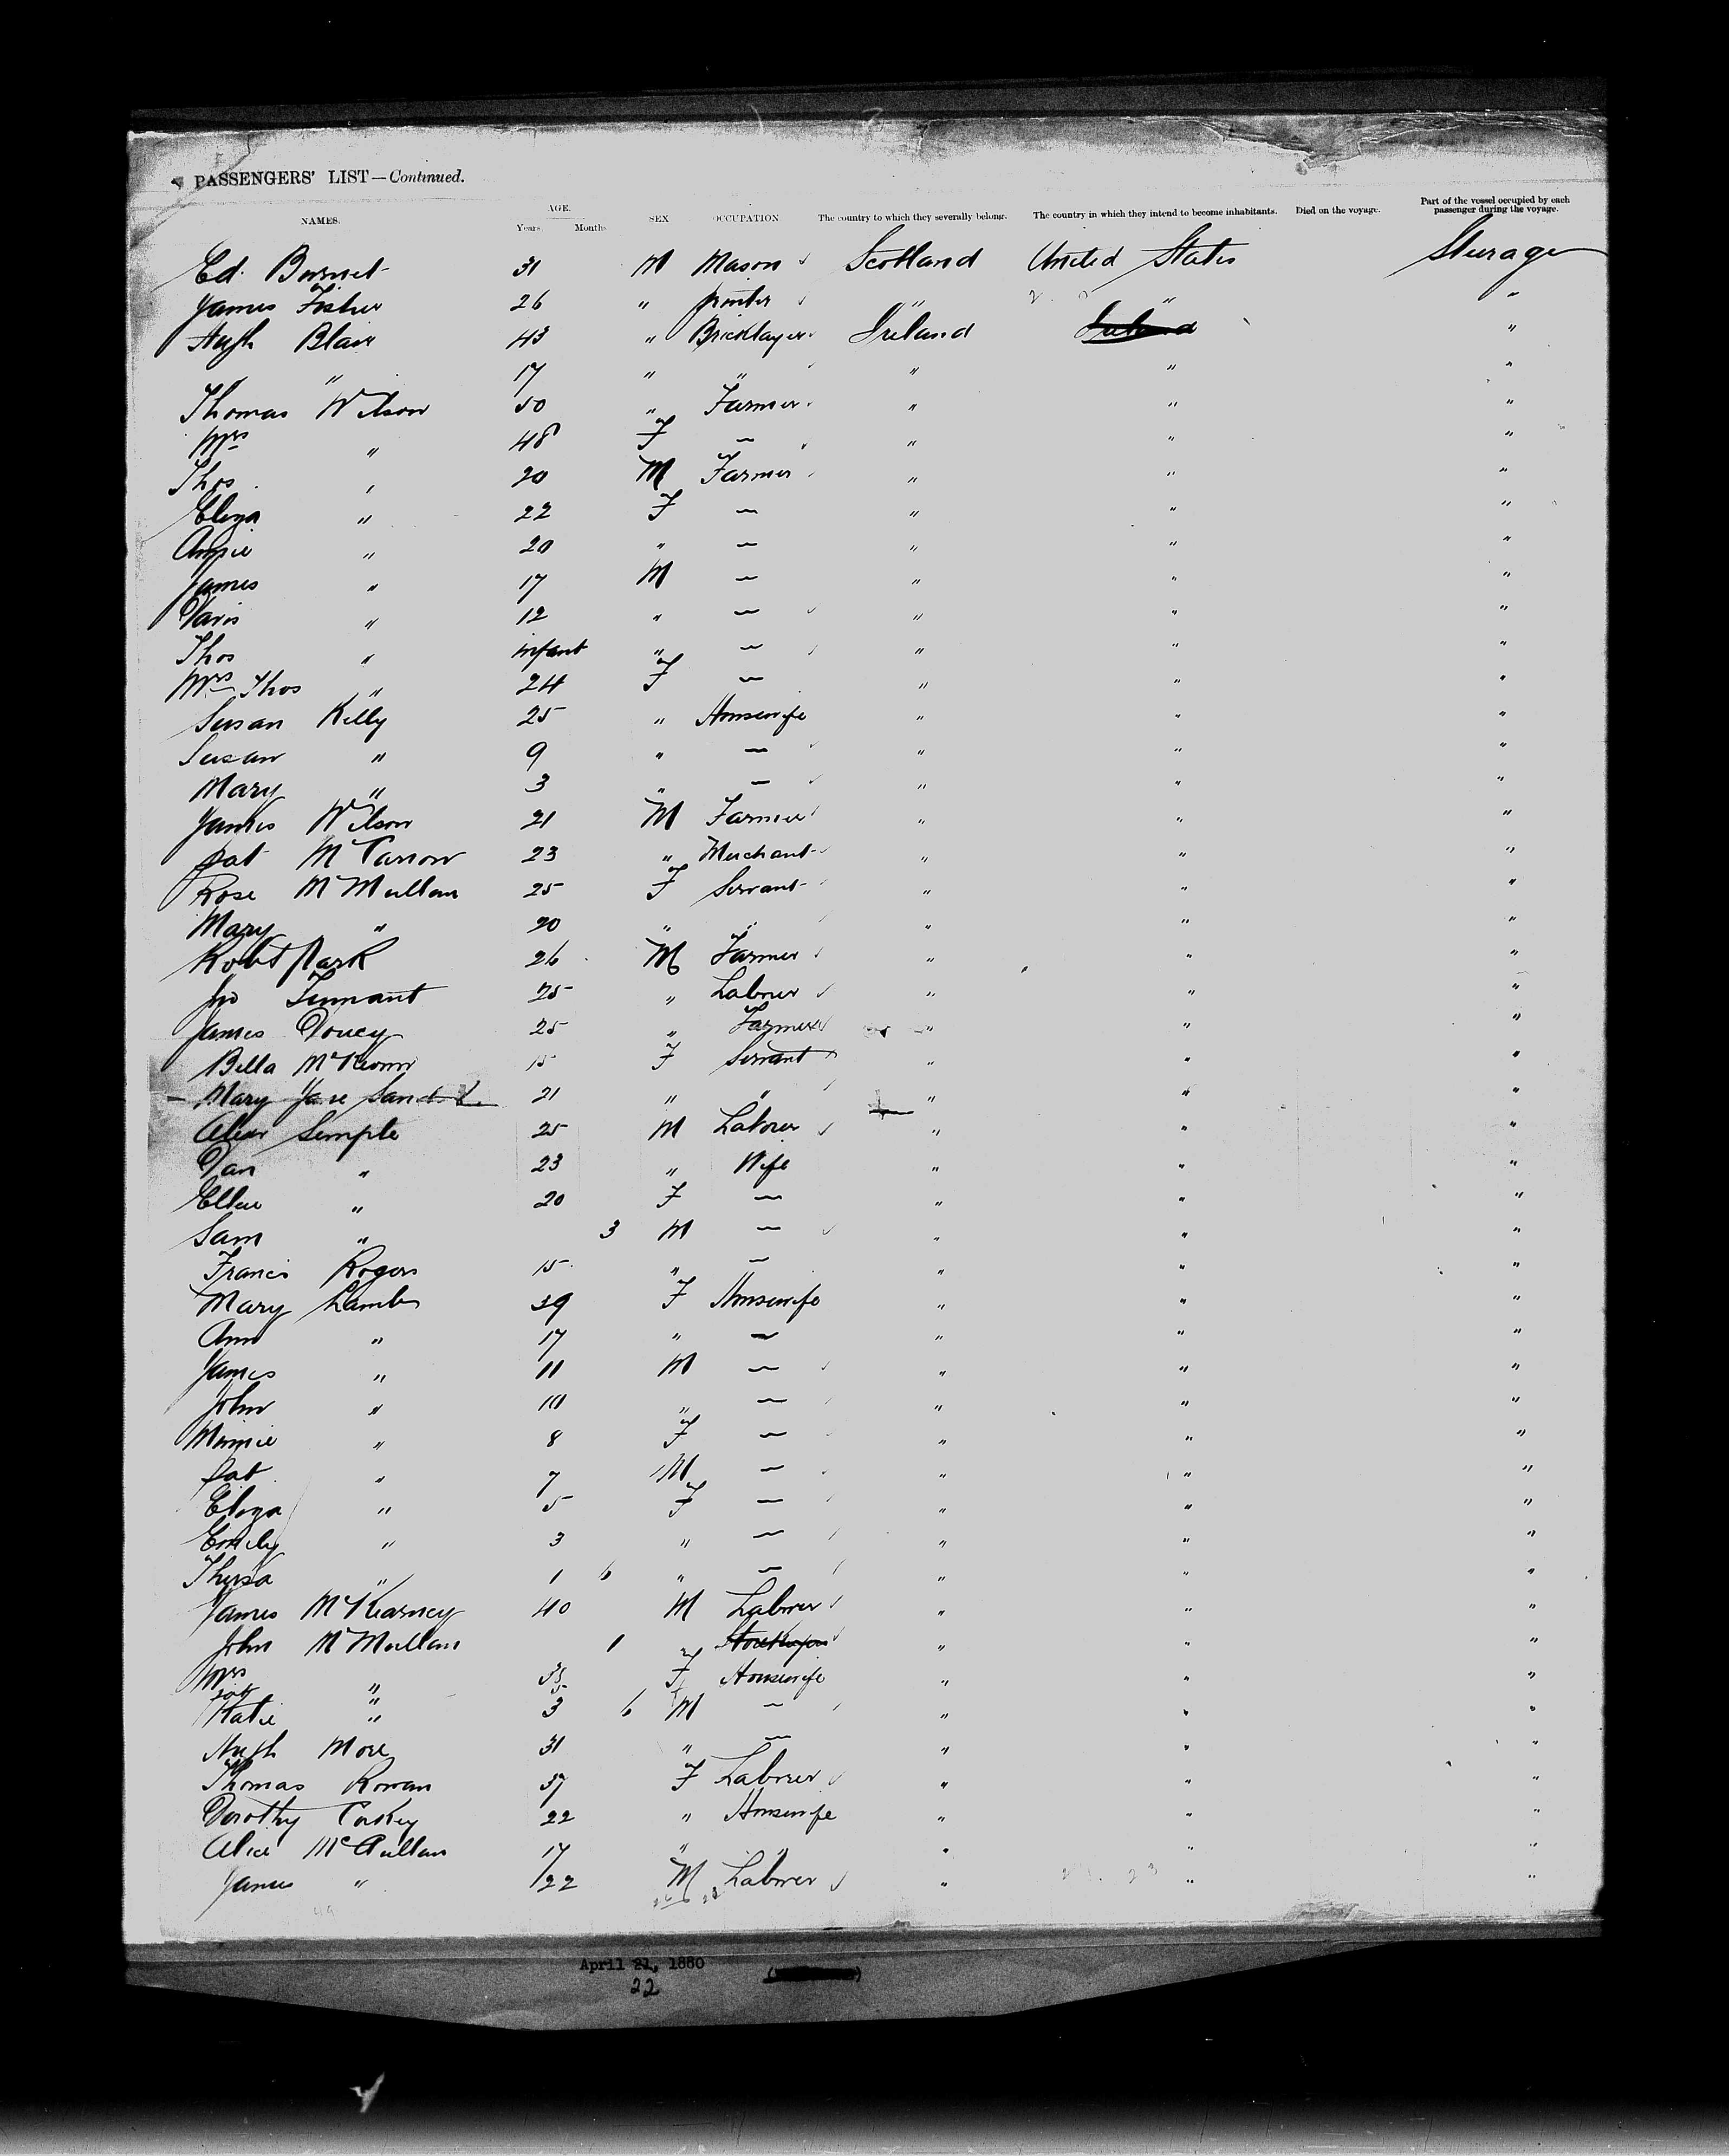 PASSENGERS' LIST—Continued.
NAMES. AGE. Years. Months SEX OCCUPATION The country to which they severally belong. The country in which they intend to become inhabitants. Died on the voyage. Part of the vessel occupied by each passenger during the voyage.
Ed. Burnet 31 M Mason Scotland United States Steerage
James Fisher 26 " printer " " "
Hugh Blair 43 " Bricklayer Ireland Ireland "
" 17 " " " " "
Thomas Wilson 50 " Farmer " " "
Mrs " 48 F — " " "
Thos " 20 M Farmer " " "
Eliza " 22 F — " " "
" 20 " — " " "
James " 17 M — " " "
" 12 " — " " "
Thos " infant " — " " "
Mrs Thos " 24 F — " " "
Susan Kelly 25 " Housewife " " "
Susan " 9 " — " " "
Mary " 3 " — " " "
James Wilson 21 M Farmer " " "
Pat 23 " Merchant " " "
Rose McMullan 25 F Servant " " "
Mary " 20 " " " " "
Robt Park 26 M Farmer " " "
Jno Tennant 25 " Labrer " " "
James 25 " Farmer " " "
Bella McKeown 15 F Servant " " "
Mary Jane 21 " " " " "
Alexr Semple 25 M Laborer " " "
Dan " 23 " Wife " " "
Ellen " 20 F — " " "
Sam " 3 M — " " "
Francis Rogers 15 " — " " "
Mary Lamb 39 F Housewife " " "
Ann " 17 " — " " "
James " 11 M — " " "
John " 10 " — " " "
Minnie " 8 F — " " "
Pat " 7 M — " " "
Eliza " 5 F — " " "
Emily " 3 " — " " "
Thersa " 1 6 " — " " "
James McKearney 40 M Labrer " " "
John McMullan 1 " " "
Mrs " 35 F Housewife " " "
"
Katie " 3 6 M — " " "
Hugh More 31 " — " " "
Thomas Rowan 37 F Labrer " " "
Dorothy Caskey 22 " Housewife " " "
Alice 17 " " " " "
James " 22 M Labrer " " "
April 21, 1880
22